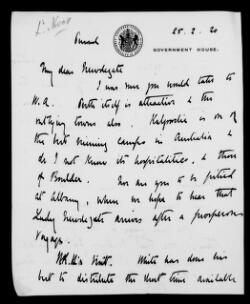 25. 2. 20
GOVERNMENT HOUSE.
My dear Newdegate
I was sure you would take to
W.A. Perth itself is attractive & the
outlying towns also. Kalgoorlie is one of
the best mining camps in Australia &
do I not know its hospitalities, & those
of Boulder. Nor are you to be pitied
at Albany, where we hope to hear that
Lady Newdegate arrives after a prosperous
voyage.
Visit. White has done his
best to distribute the short time available